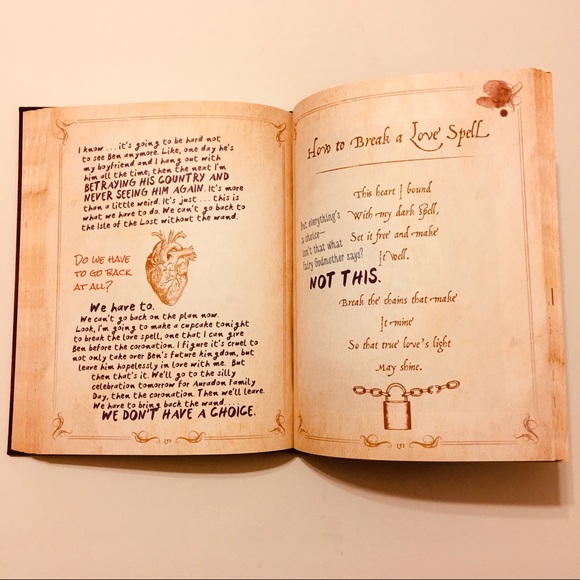 I know . . . it's going to be hard not
to see Ben anymore. Like, one day he's
my boyfriend and I hang out with
him all the time, then the next I'm
BETRAYING HIS COUNTRY AND
NEVER SEEING HIM AGAIN. It's more
than a little weird. It's just . . . this is
what we have to do. We can't go back to
the Isle of the Lost without the wand.
DO WE HAVE
TO GO BACK
AT ALL?
We have to.
We can't go back on the plan now.
Look, I'm going to make a cupcake tonight
to break the love spell, one that I can give
Ben before the coronation. I figure it's cruel to
not only take over Ben's future kingdom, but
leave him hopelessly in love with me. But
then that's it. We'll go to the silly
celebration tomorrow for Auradon Family
Day, then the coronation. Then we'll leave.
We have to bring back the wand. . . .
WE DON'T HAVE A CHOICE.
How to Break a Love Spell
This heart I bound
With my dark spell,
Set it free and make
It well.
But everything's
a choice—
isn't that what
Fairy Godmother says?
NOT THIS.
Break the chains that make
It mine
So that true love's light
May shine.